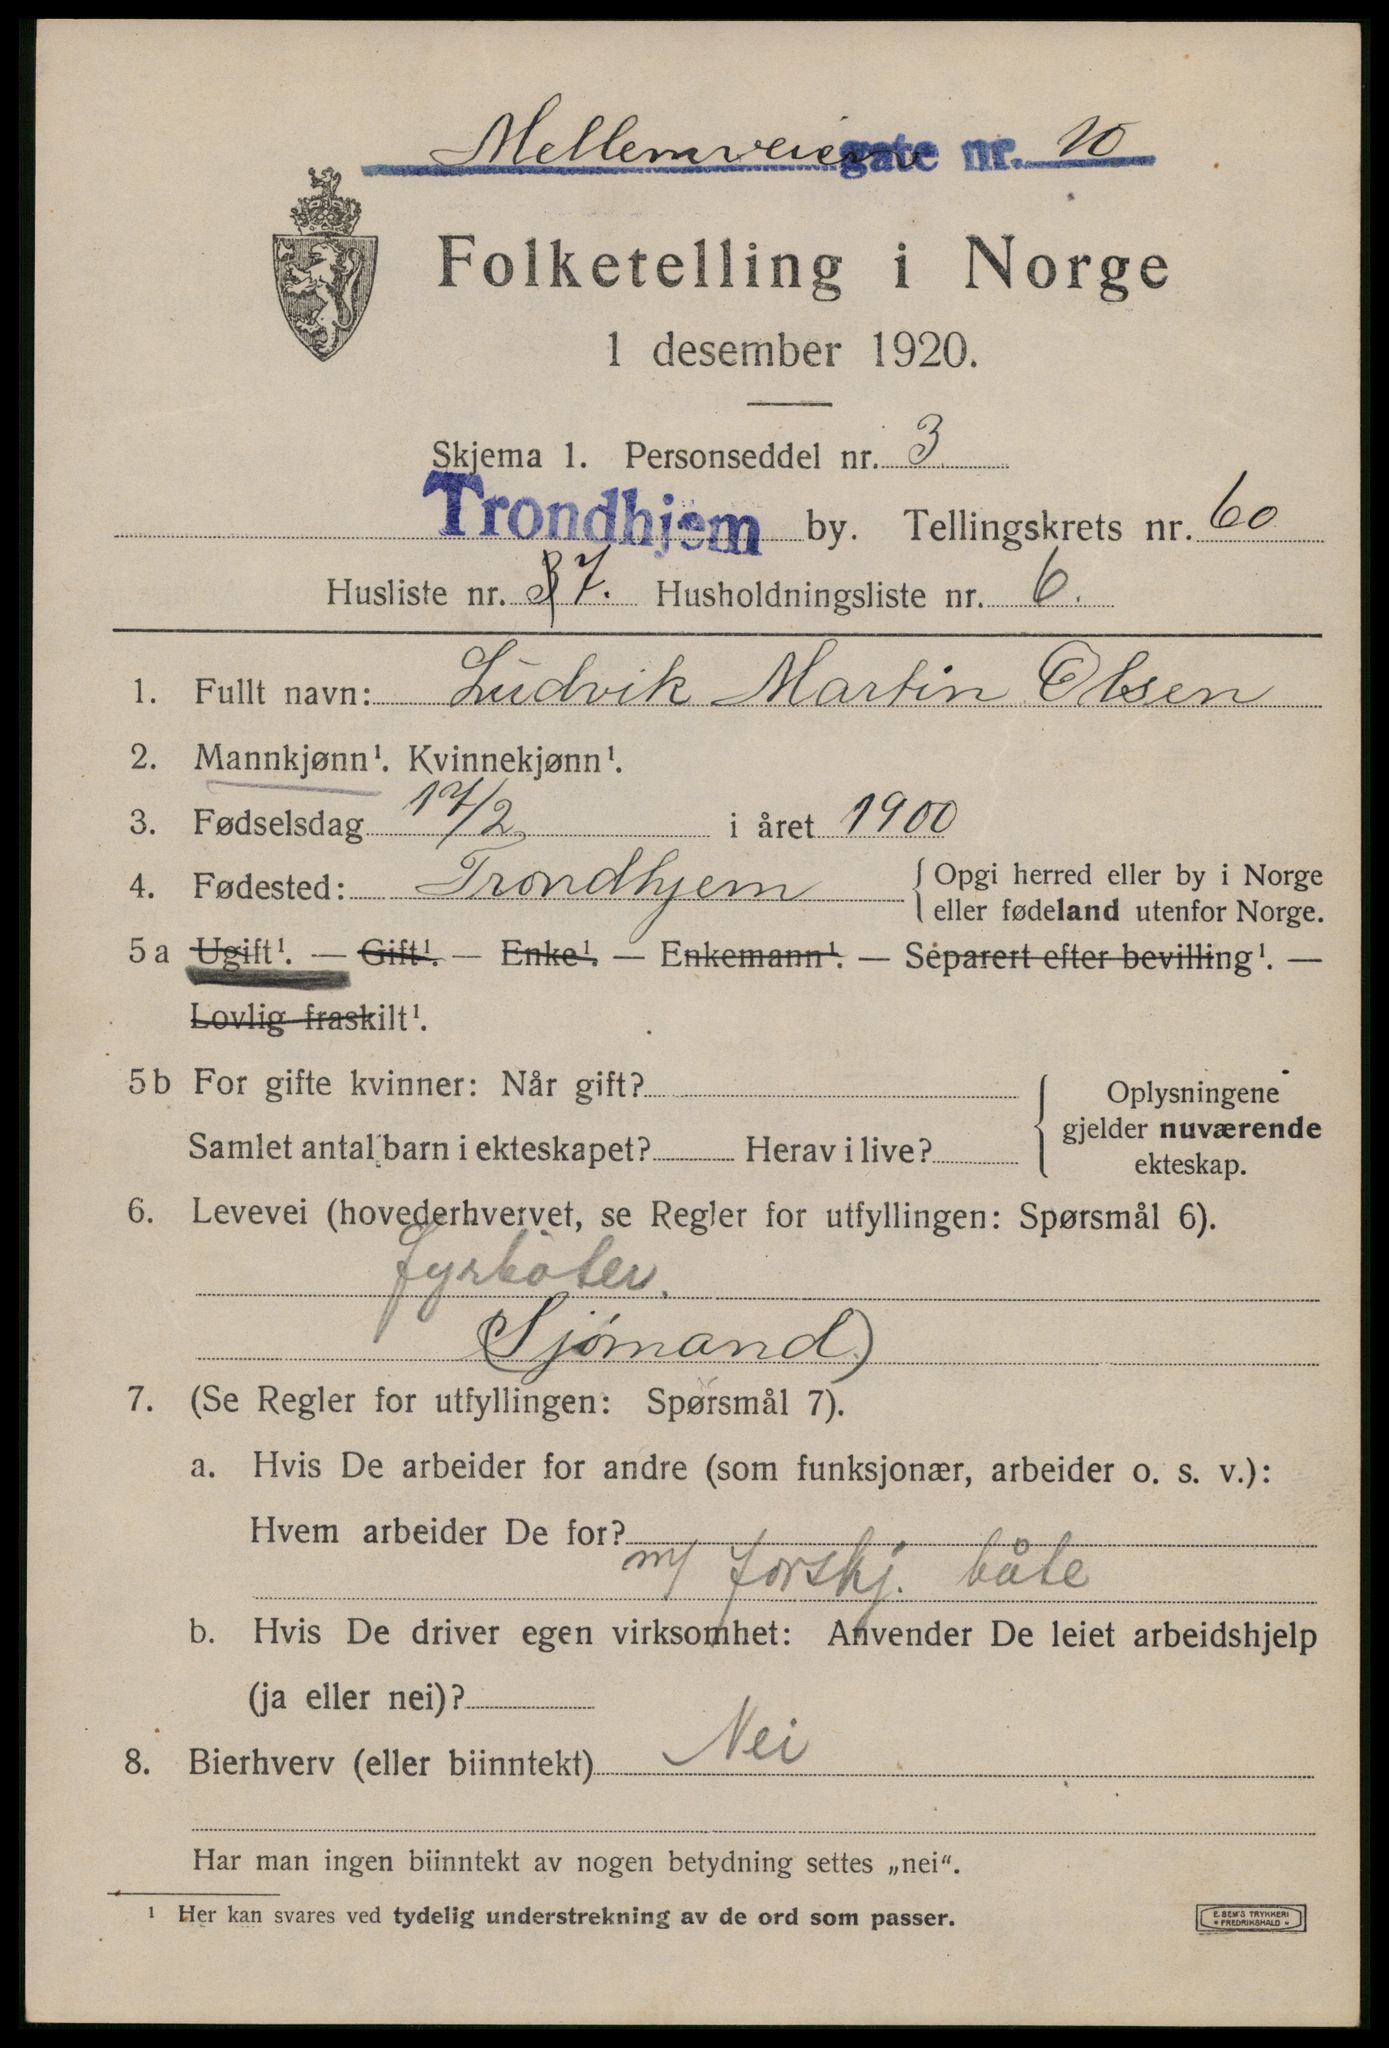 Mellemveien gate nr. 10
Folketelling i Norge
1 desember 1920.
Skjema 1. Personseddel nr. 3
Trondhjem by. Tellingskrets nr. 60
Husliste nr. 37. Husholdningsliste nr. 6.
1. Fullt navn: Ludvik Martin Olsen
2. Mannkjønn¹. Kvinnekjønn¹.
3. Fødselsdag 17/2 i året 1900
4. Fødested: Trondhjem { Opgi herred eller by i Norge
eller fødeland utenfor Norge.
5 a Ugift¹. — Gift¹. — Enke¹. — Enkemann¹. — Separert efter bevilling¹. —
Lovlig fraskilt¹.
5 b For gifte kvinner: Når gift?
Samlet antal barn i ekteskapet? Herav i live?
Oplysningene
gjelder nuværende
ekteskap.
6. Levevei (hovederhvervet, se Regler for utfyllingen: Spørsmål 6).
fyrbøter.
(Sjömand)
7. (Se Regler for utfyllingen: Spørsmål 7).
a. Hvis De arbeider for andre (som funksjonær, arbeider o. s. v.):
Hvem arbeider De for?
m/ forskj. båte
b. Hvis De driver egen virksomhet: Anvender De leiet arbeidshjelp
(ja eller nei)?
8. Bierhverv (eller biinntekt) Nei
Har man ingen biinntekt av nogen betydning settes „nei“.
¹ Her kan svares ved tydelig understrekning av de ord som passer.
E. SEM'S TRYKKERI
* FREDRIKSHALD *